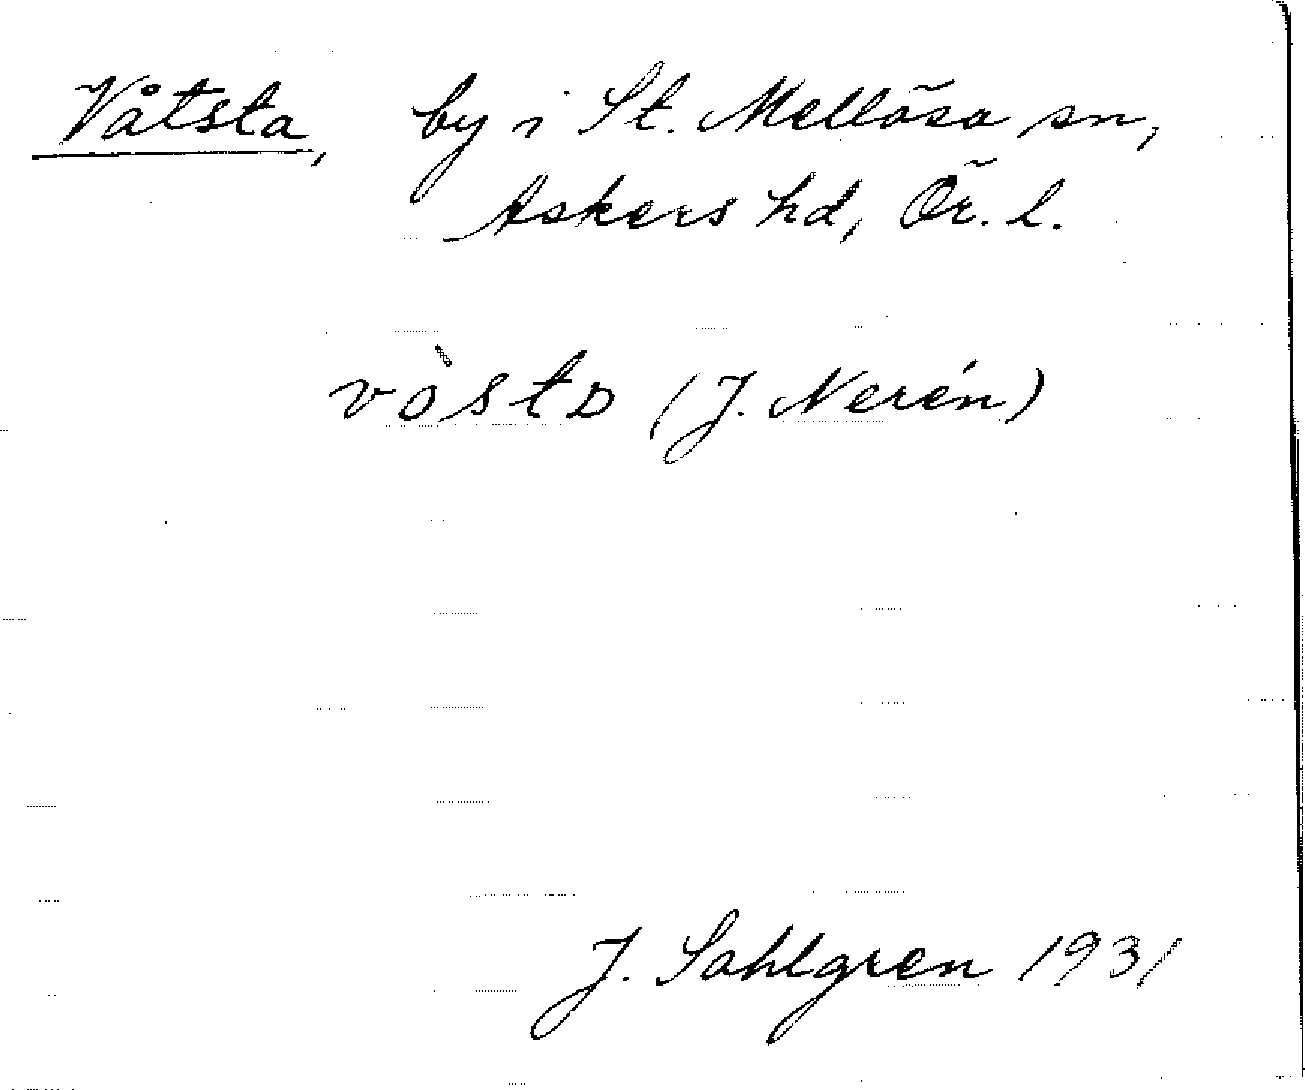 Våtsta, by i St. Mellösa sn,
Askers hd, Ör. l.
vòsta (J. Nerén)
J. Sahlgren 1931